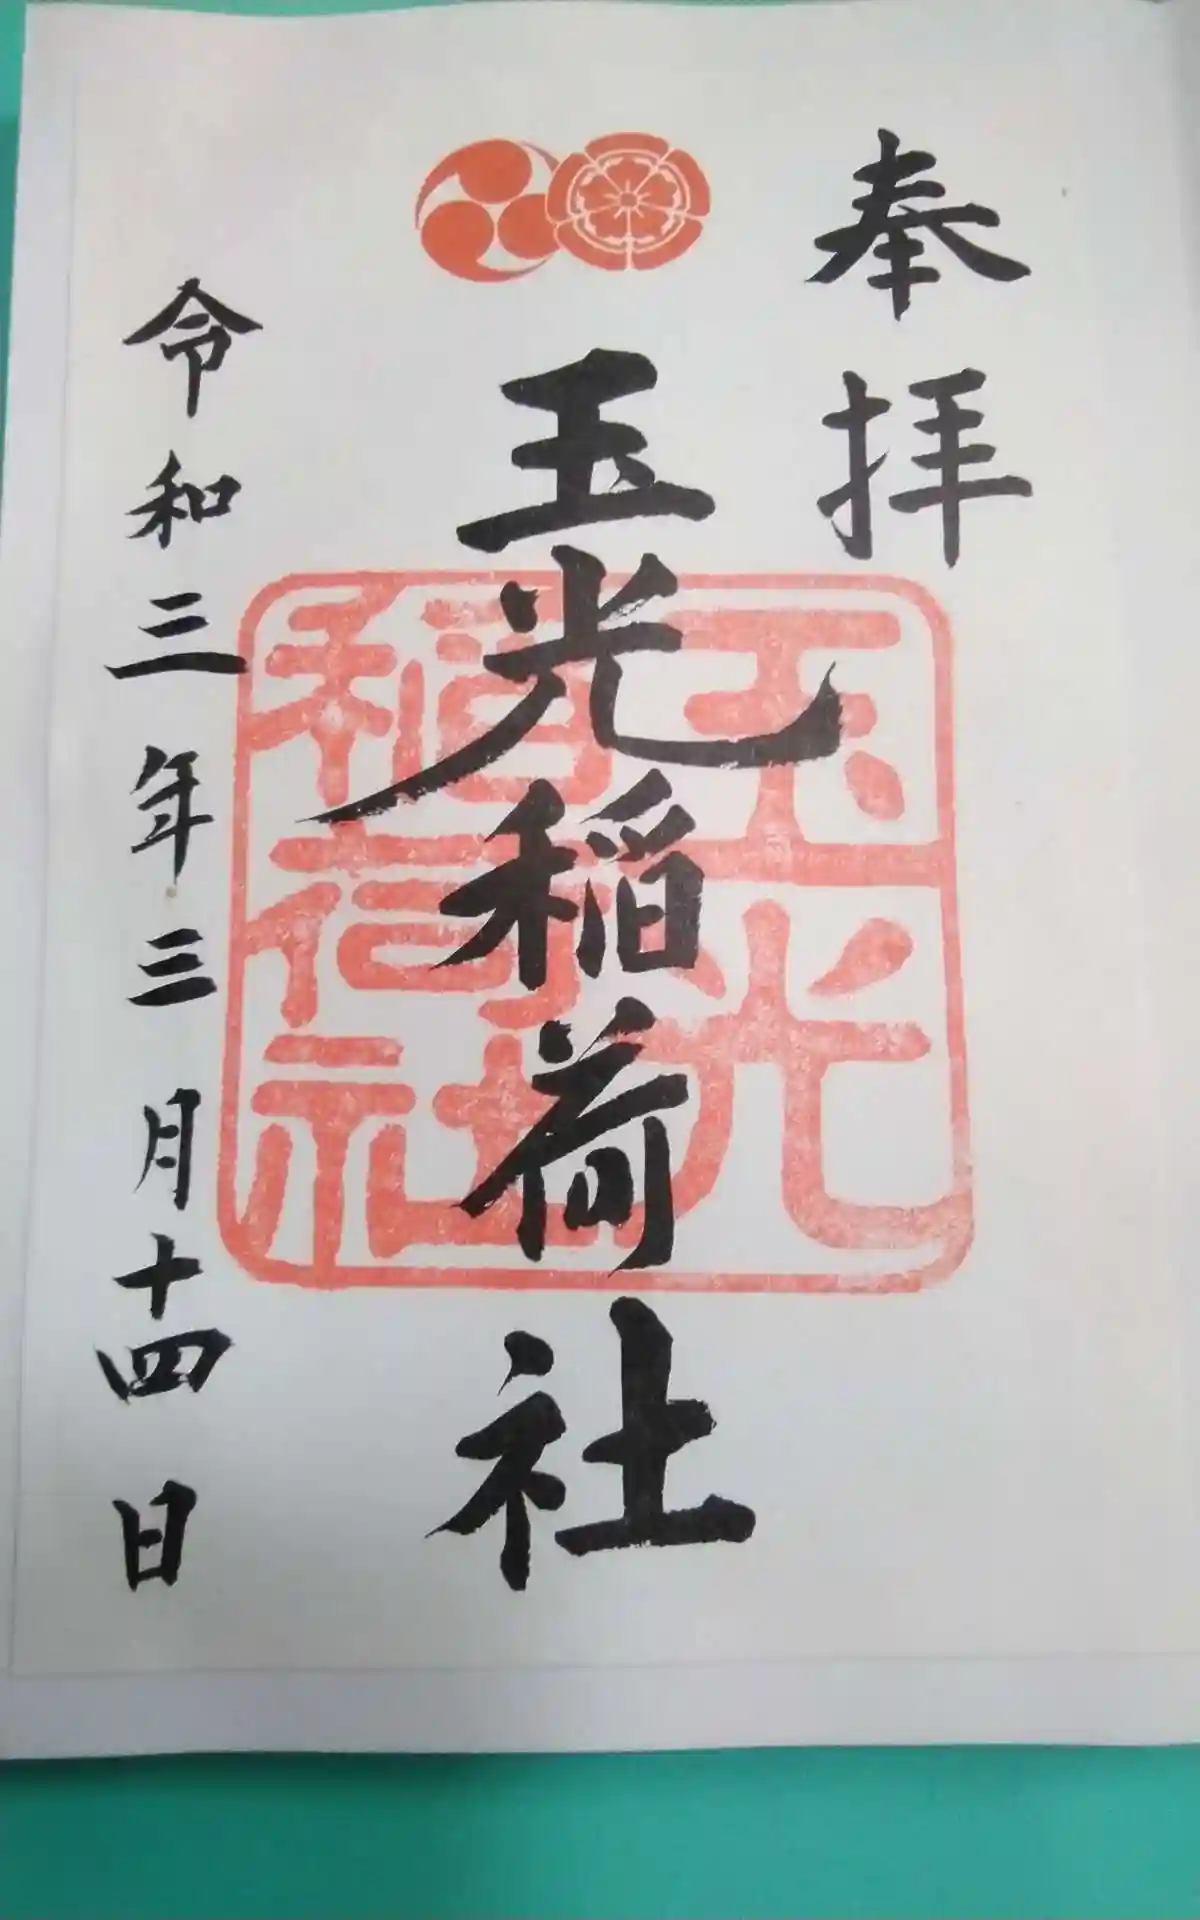 奉拝
玉光稲荷社
玉光
稲荷社
令和三年三月十四日